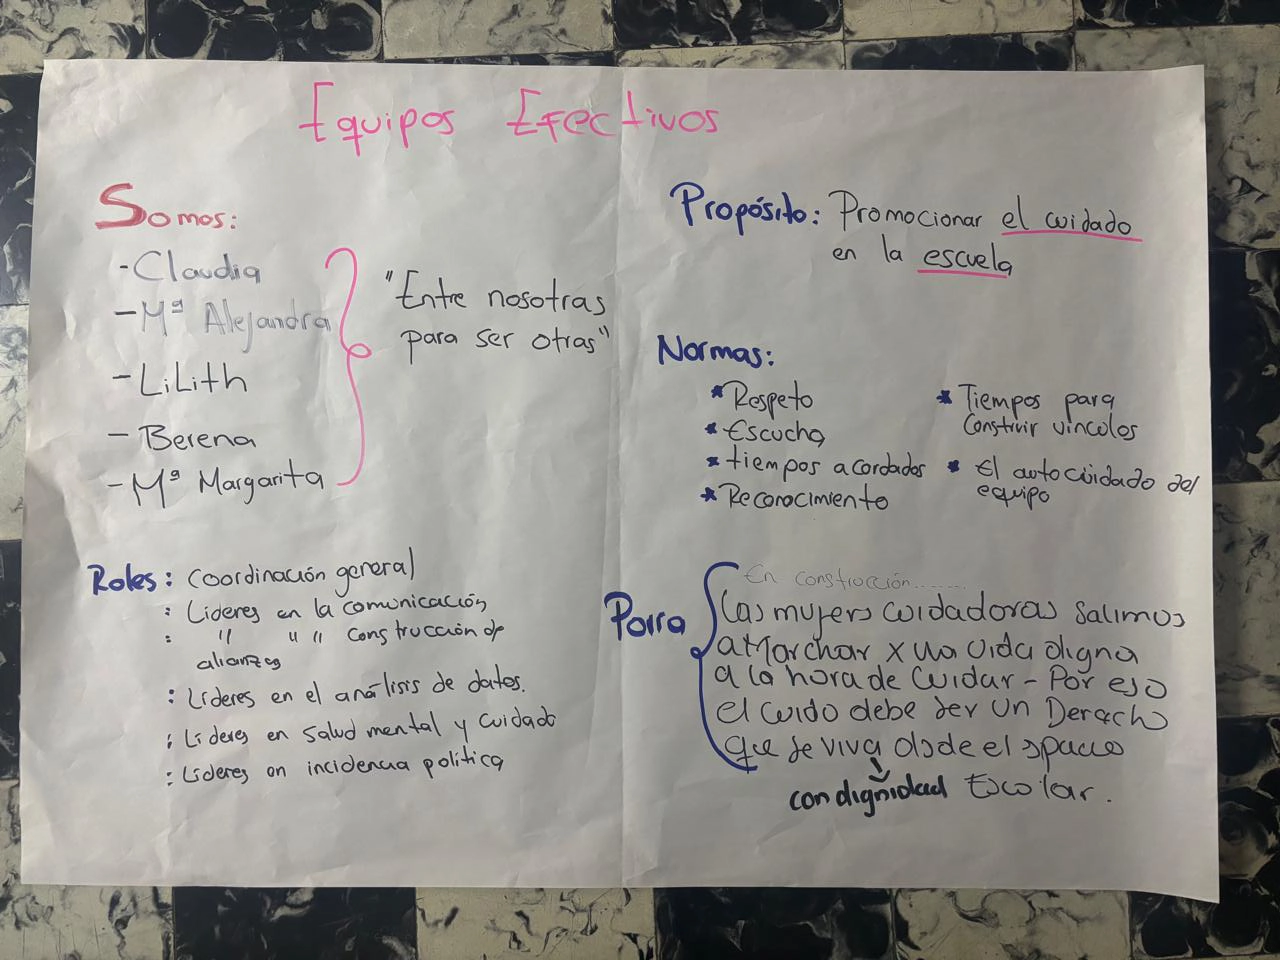 Equipos Efectivos
Somos:
- Claudia
- Mª Alejandra
- Lilith
- Berena
- Mª Margarita
"Entre nosotras
para ser otras"
Roles: Coordinación general
: Lideres en la comunicación
: " " " construcción de
alianzas
: Líderes en el análisis de datos.
: Lideres en salud mental y cuidado
: Lideres en incidencia política
Propósito: Promocionar el cuidado
en la escuela
Normas:
* Respeto
* Escucha
* tiempos acordados
* Reconocimiento
* Tiempos para
construir vínculos
* El autocuidado del
equipo
Porra
En construcción........
Las mujeres cuidadoras salimos
a Marchar x una vida digna
a la hora de cuidar - Por eso
el cuido debe ser un Derecho
que se viva dsde el spacio
con dignidad Escolar.